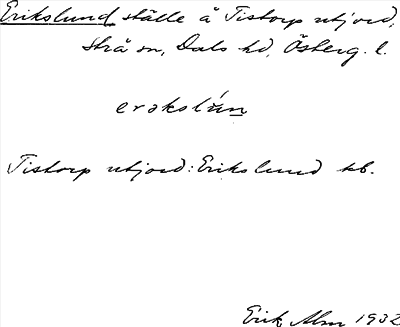 Erikslund ställe å Tistorp utjord,
Strå sn, Dals hd, Österg. l.
erəkslún
Tistorp utjord: Erikslund kb.
Erik Alm 1932